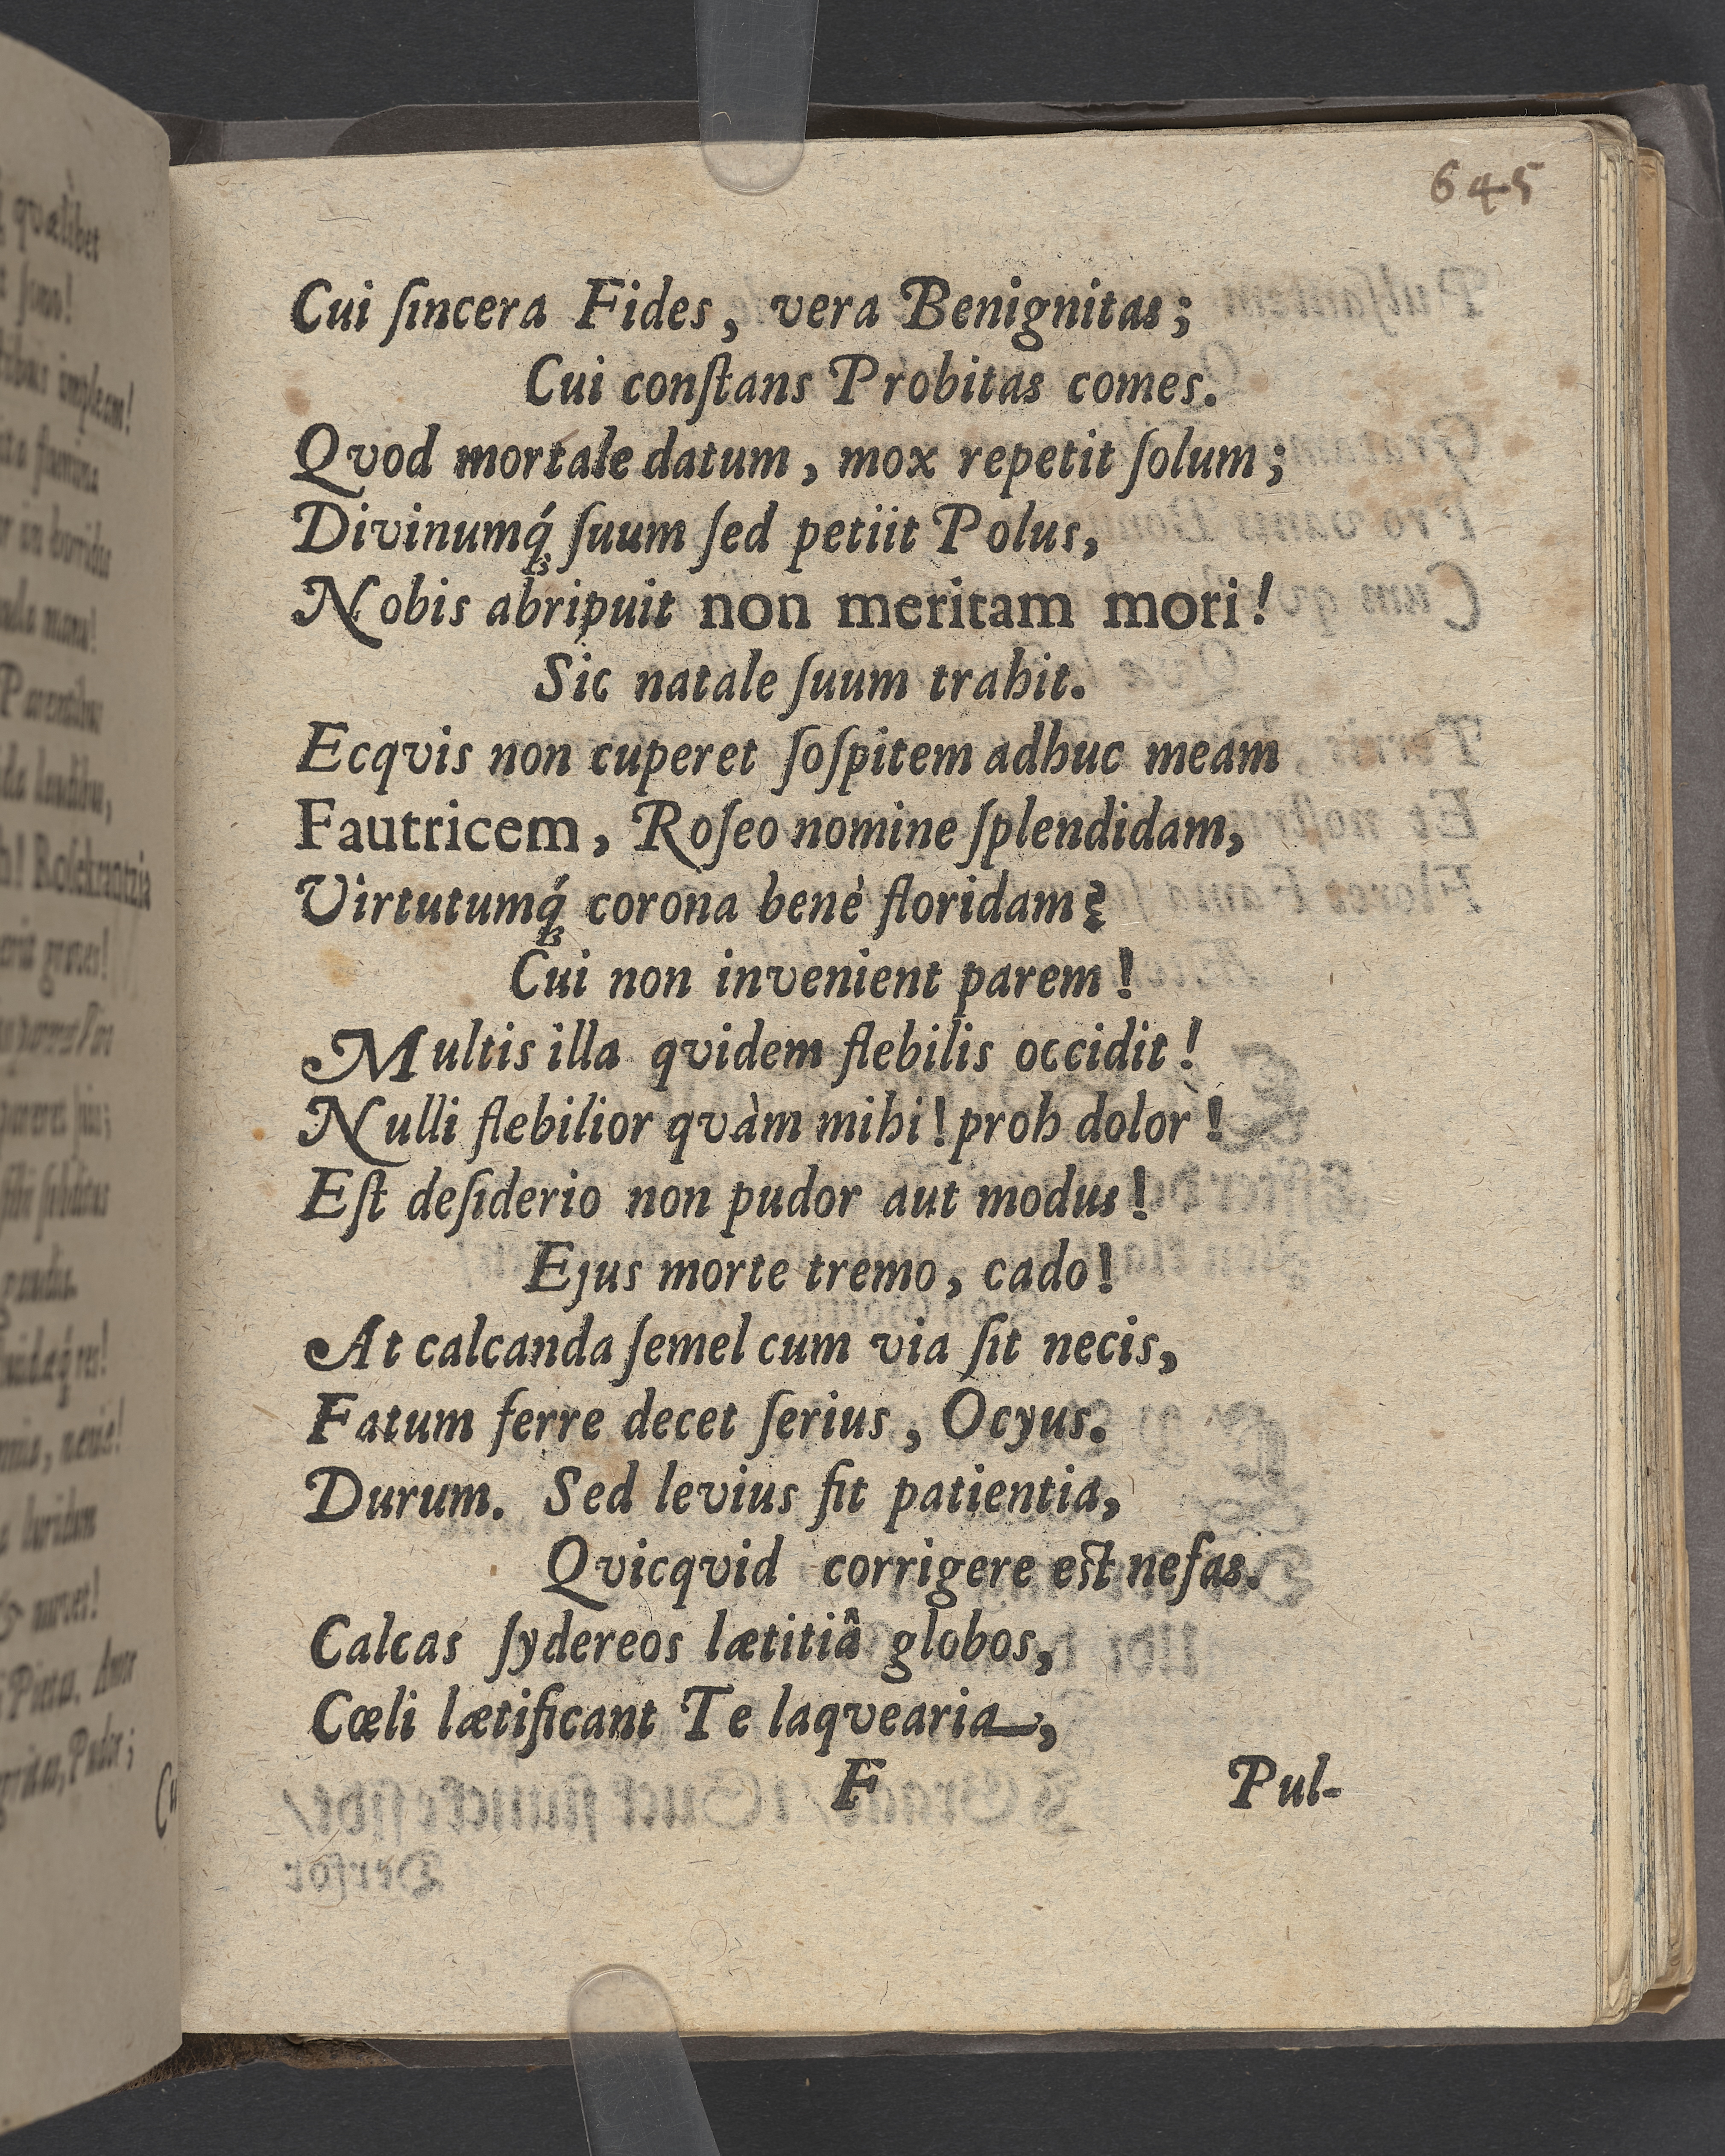 qvælibet
645
Cui ſincera Fides, vera Benignitas;
Cui conſtans Probitas comes.
Qvod mortale datum, mox repetit ſolum;
Divinumq́ꝫ ſuum ſed petiit Polus,
Nobis abripuit non meritam mori!
Sic natale ſuum trahit.
Ecqvis non cuperet ſoſpitem adhuc meam
Fautricem, Roſeo nomine ſplendidam,
Virtutumq́ꝫ corona benè floridam?
Cui non invenient parem!
Multis illa qvidem flebilis occidit!
Nulli flebilior qvàm mihi! proh dolor!
Eſt deſiderio non pudor aut modus!
Ejus morte tremo, cado!
At calcanda ſemel cum via ſit necis,
Fatum ferre decet ſerius, Ocyus.
Durum. Sed levius fit patientia,
Qvicqvid corrigere eſt nefas.
Calcas ſydereos lætitiâ globos,
Cœli lætificant Te laqvearia,
F Pul-